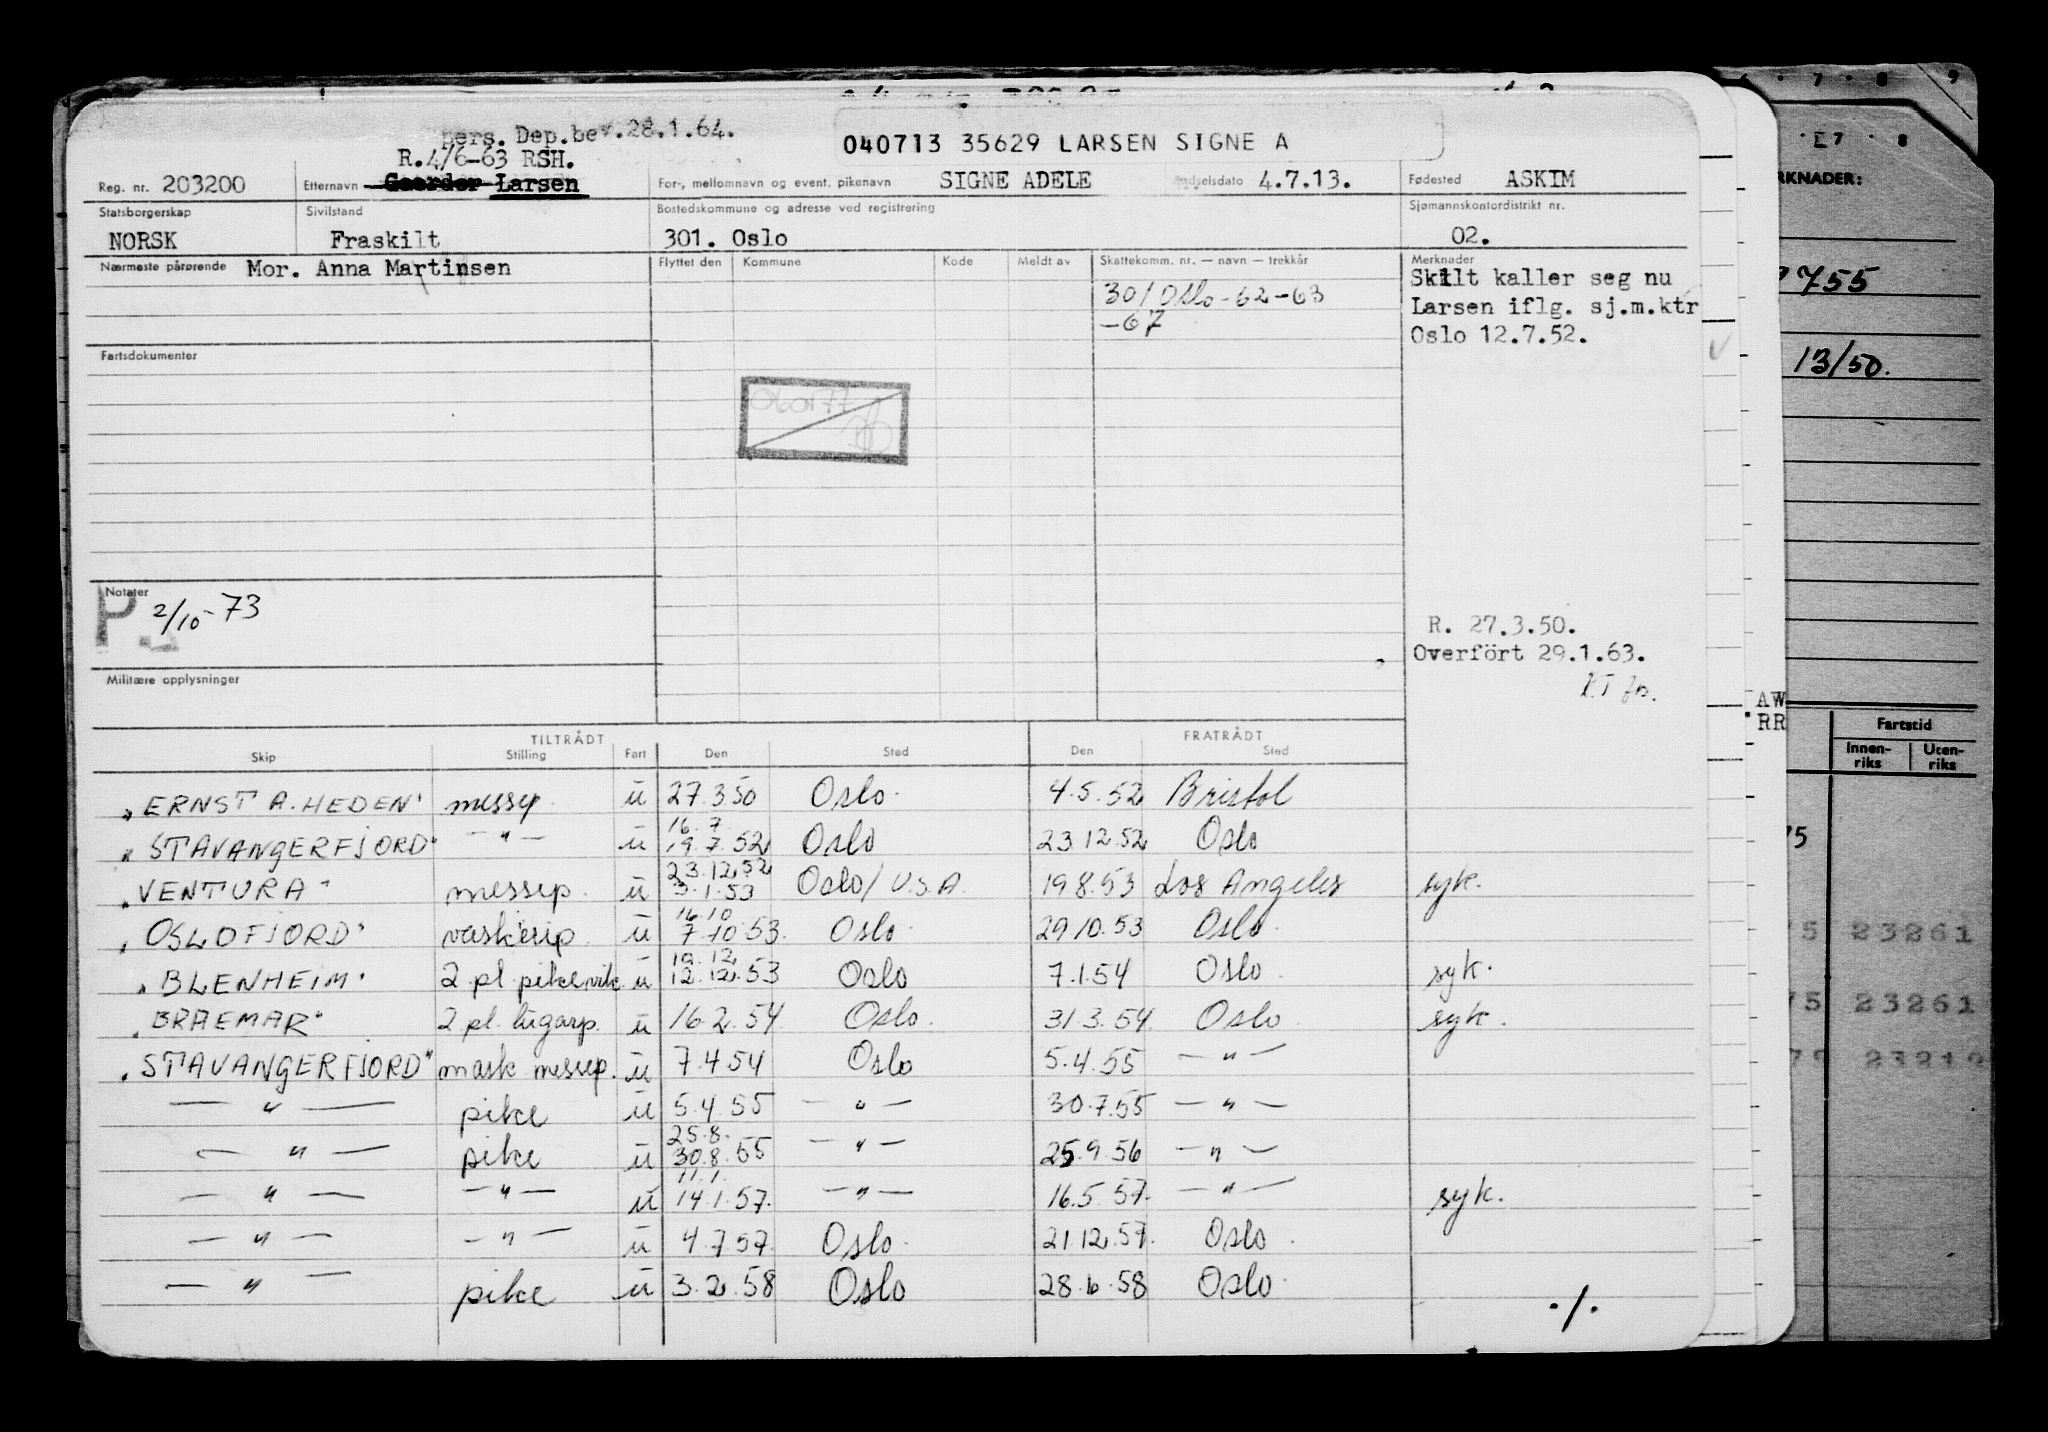 pers. Dep.bev.28.1.64.
040713 35629 LARSEN SIGNE A
R.4/6-63 RSH.
Reg. nr. 203200 Etternavn Larsen For-, mellomnavn og event. pikenavn SIGNE ADELE Fødselsdato 4.7.13. Fødested ASKIM
Statsborgerskap Sivilstand Bostedskommune og adresse ved registrering Sjømannskontordistrikt nr.
NORSK Fraskilt 301. Oslo 02.
Nærmeste pårørende Mor. Anna Martinsen Flyttet den Kommune Kode Meldt av Skattekomm. nr. — navn — trekkår Merknader
301 Oslo -62-63
-67
Skilt kaller seg nu
Larsen iflg. sj.m.ktr
Oslo 12.7.52.
Fartsdokumenter
060177
Notater
P. 2/10-73
R. 27.3.50.
Overfört 29.1.63.
Militære opplysninger
TILTRÅDT FRATRÅDT
Skip Stilling Fart Den Sted Den Sted
"ERNST A. HEDEN" messep. u 27.3.50 Oslo. 4.5.52 Bristol
16.7
"STAVANGERFJORD" — " — u 19.7.52 Oslo 23.12.52 Oslo
23.12.52
"VENTURA" messep. u 3.1.53 Oslo/U.S.A. 19.8.53 Los Angeles syk.
16.10
"OSLOFJORD" vaskerip. u 7.10.53. Oslo. 29.10.53 Oslo.
12.12.53 Oslo 7.1.54 Oslo. syk.
"BLENHEIM" 2 pl. pike u
"BRAEMAR" 2 pl. lugarp. u 16.2.54 Oslo. 31.3.54 Oslo. syk.
"STAVANGERFJORD" mask messep. u 7.4.54 Oslo 5.4.55 — " —
— " — pike u 5.4.55 — " — 30.7.55 — " —
25.8.
— " — pike u 30.8.55 — " — 25.9.56 — " —
11.1.
— " — — " — u 14.1.57. — " — 16.5.57. — " — syk.
— " — — " — u 4.7.57. Oslo. 21.12.57. Oslo.
— " — pike u 3.2.58 Oslo 28.6.58 Oslo.
./.
7 8 9
7 8
RKNADER:
755
13/50.
AW
RR
Fartstid
Innen-
riks
Uten-
riks
75
75 23261
75 23261
77 23212